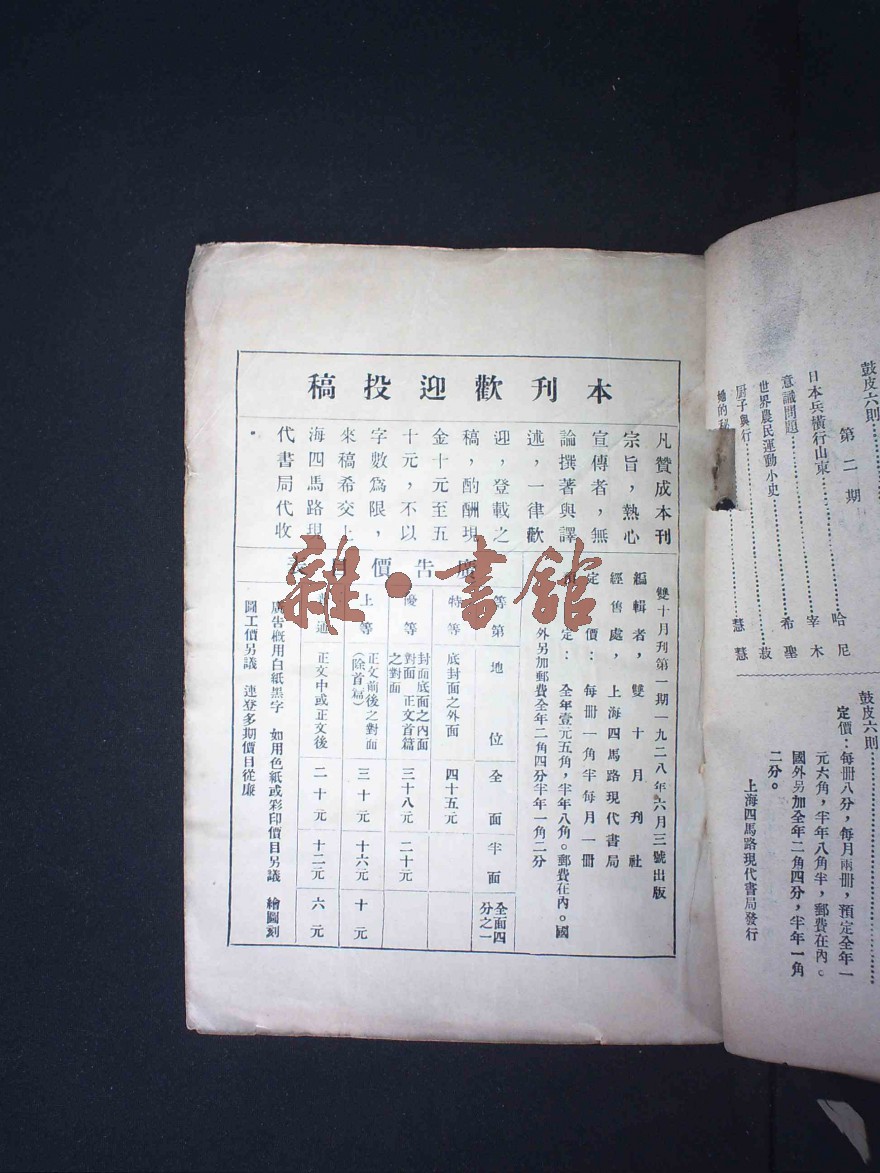 本刊歡迎投稿
凡贊成本刊
宗旨，熱心
宣傳者，無
論撰著與譯
述，一律歡
迎，登載之
稿，酌酬現
金十元至五
十元，不以
字數爲限，
來稿希交上
海四馬路現
代書局代收
。
雙十月刊第一期一九二八年六月三號出版
編輯者，雙十月刊社
經售處，上海四馬路現代書局
定價：每冊一角半每月一冊
定：全年壹元五角，半年八角。郵費在內。國
外另加郵費全年二角四分半年一角二分
廣告價目表
等第 地位 全面 半面 全面四分之一
特等 底封面之外面 四十五元
優等 封面底面之內面對面 正文首篇之對面 三十八元 二十元
上等 正文前後之對面（除首篇） 三十元 十六元 十元
普通 正文中或正文後 二十元 十二元 六元
廣告概用白紙黑字 如用色紙或彩印價目另議 繪圖刻
圖工價另議 連登多期價目從廉
鼓皮六則
第二期
日本兵橫行山東 哈尼
意識問題 宰木
世界農民運動小史 希聖
廚子與行 菽
她的秘 慧
慧
鼓皮六則
定價：每冊八分，每月兩冊，預定全年一
元六角，半年八角半，郵費在內。
國外另加全年二角四分，半年一角
二分。
上海四馬路現代書局發行
雜·書館